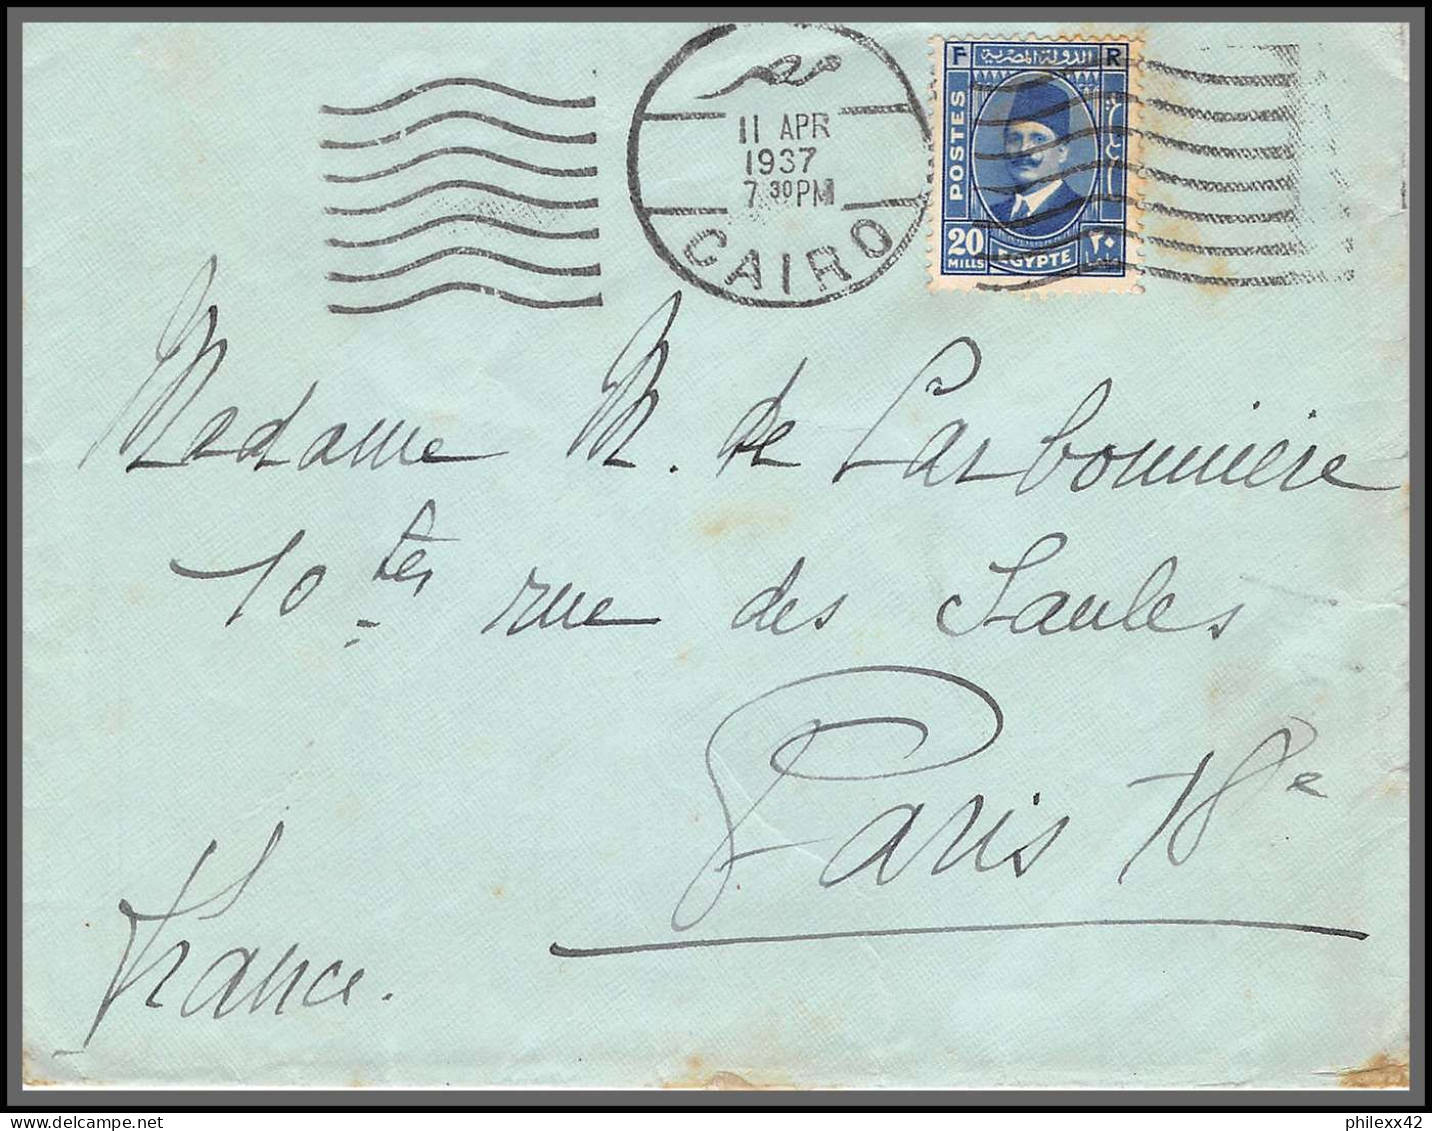 مصر
11 APR
1937
7 30 PM
CAIRO
F الدولة المصرية R
POSTES
20 ٢٠
MILLS
EGYPTE
Madame M. de Carbonnière
10 ter rue des Saules
Paris 18e
France.
philexx42